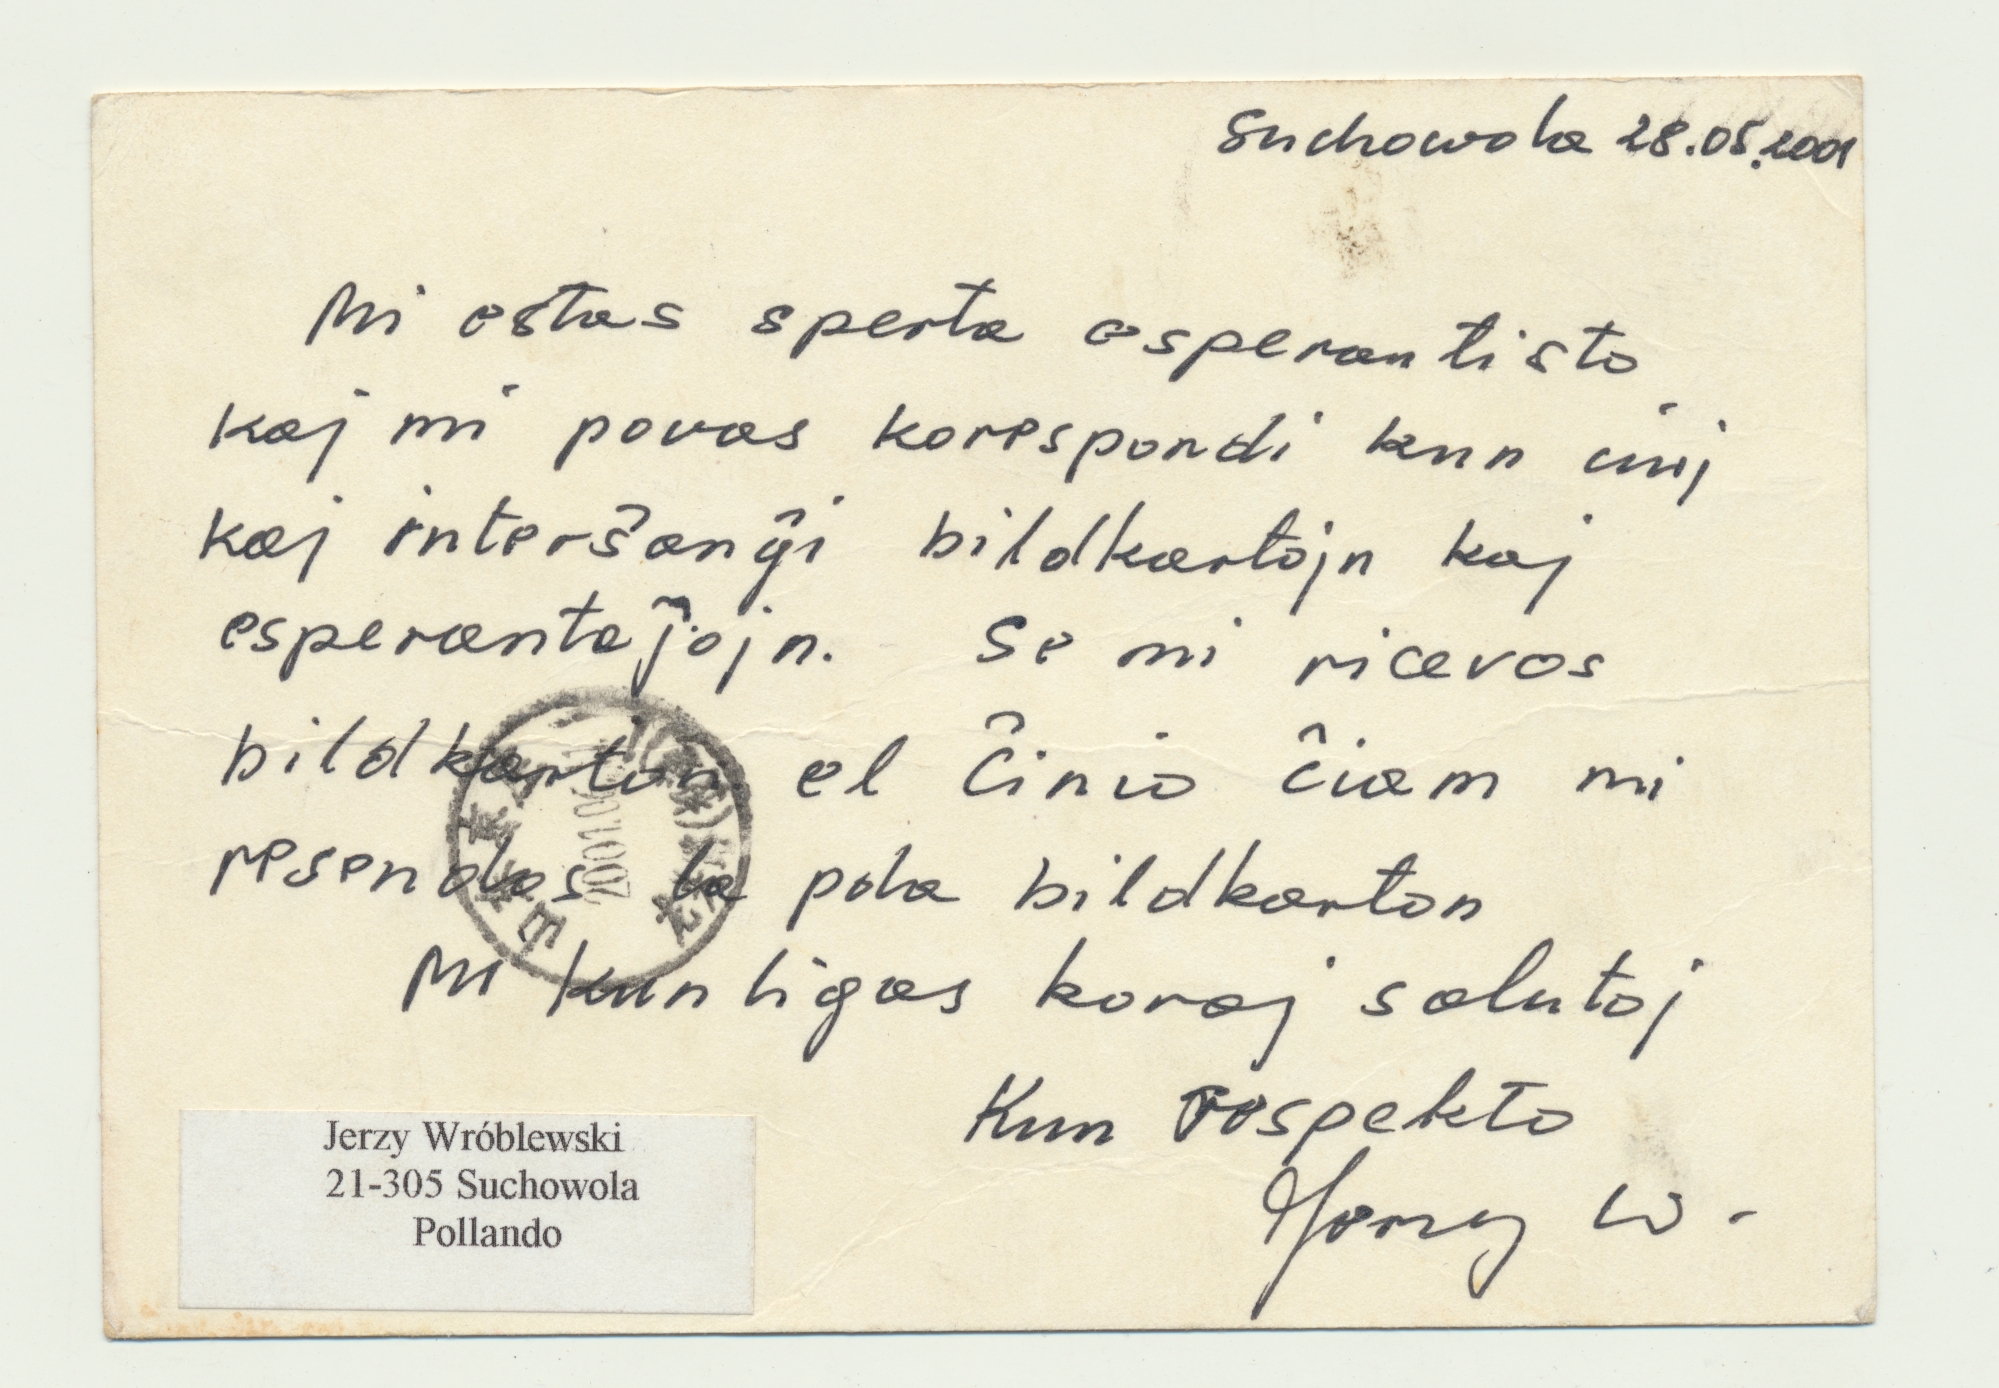 Suchowola 28.05.2001
Mi estas sperta esperantisto
kaj mi povas korespondi kun
kaj interŝanĝi bildkartojn kaj
esperantaĵojn. Se mi ricevos
bildkarton el Ĉinio ĉiam mi
resendas la pola bildkarton
Mi kunligas koraj salutoj
Kun respekto
Jerzy W.
Jerzy Wróblewski
21-305 Suchowola
Pollando
2001.0